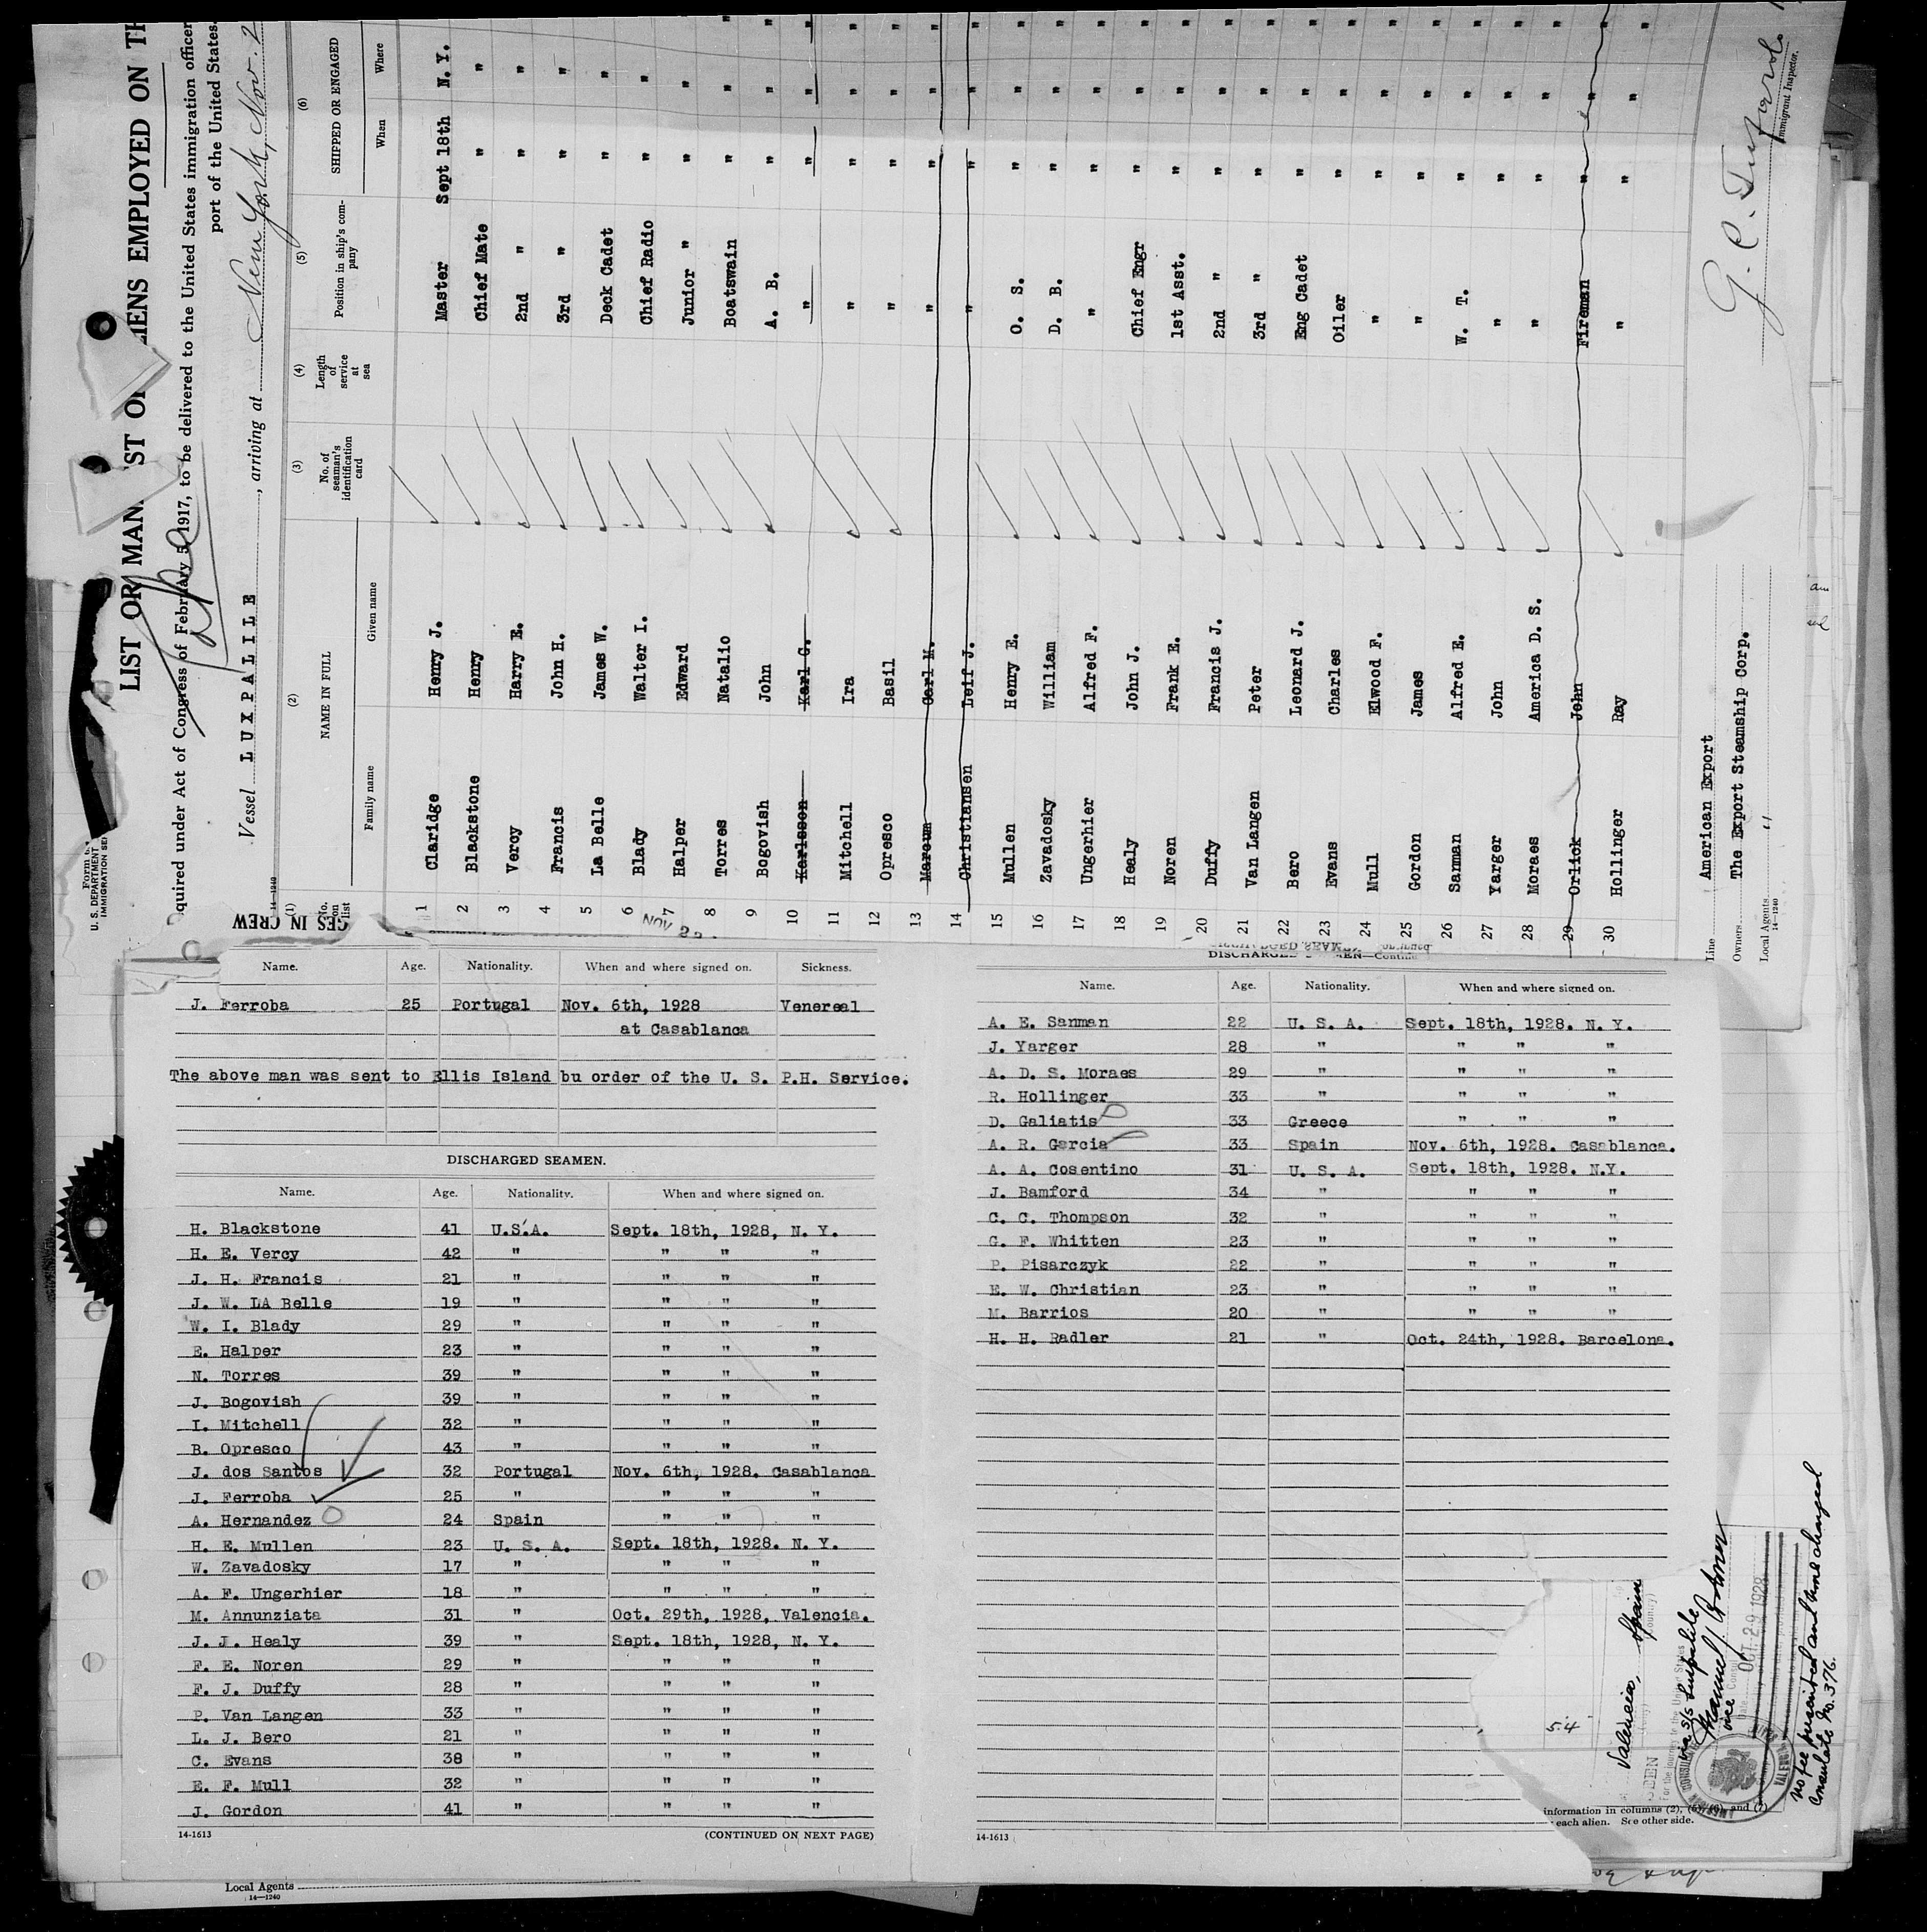 LIST OR MAN ST O IENS EMPLOYED ON TH
quired under Act of Congress of February 5, 1917, to be delivered to the United States immigration officer
port of the United States
Vessel LUXPALILE, arriving at New York, Nov. 2
(1) (2) (3) (4) (5) (6)
No. on list NAME IN FULL No. of seaman's identification card Length of service at sea Position in ship's company SHIPPED OR ENGAGED
Family name Given name When Where
1 Claridge Henry J. Master Sept 18th N. Y.
2 Blackstone Henry Chief Mate " "
3 Vercy Harry E. 2nd " " "
4 Francis John H. 3rd " " "
5 La Belle James W. Deck Cadet " "
6 Blady Walter I. Chief Radio " "
7 Halper Edward Junior " " "
8 Torres Natalio Boatswain " " "
9 Bogovish John A. B. " " "
10 Karlsson Karl G. " " " "
11 Mitchell Ira " " " "
12 Opresco Basil " " " "
13 Marcum Carl M. " " " "
14 Christiansen Leif J. " " " "
15 Mullen Henry E. O. S. " " "
16 Zavadosky William D. B. " " "
17 Ungerhier Alfred F. " " " "
18 Healy John J. Chief Engr " " "
19 Noren Frank E. 1st Asst. " " "
20 Duffy Francis J. 2nd " " " "
21 Van Langen Peter 3rd " " " "
22 Bero Leonard J. Eng Cadet " " "
23 Evans Charles Oiler " " "
24 Mull Elwood F. " " " "
25 Gordon James " " " "
26 Sanman Alfred E. W. T. " " "
27 Yarger John " " " "
28 Moraes America D. S. " " " "
29 Orlick John Fireman " " "
30 Hollinger Ray " " " "
Line American Export
Owners The Export Steamship Corp.
Local Agents "
14-1240
Immigrant Inspector.
U. S. DEPARTMENT
IMMIGRATION SE
14-1240
GES IN CREW
NOV 2
Name. Age. Nationality. When and where signed on. Sickness.
J. Ferroba 25 Portugal Nov. 6th, 1928 Venereal
at Casablanca
The above man was sent to Ellis Island bu order of the U. S. P.H. Service.
DISCHARGED SEAMEN.
Name. Age. Nationality. When and where signed on.
H. Blackstone 41 U.S.A. Sept. 18th, 1928, N. Y.
H. E. Vercy 42 " " " "
J. H. Francis 21 " " " "
J. W. LA Belle 19 " " " "
W. I. Blady 29 " " " "
E. Halper 23 " " " "
N. Torres 39 " " " "
J. Bogovish 39 " " " "
I. Mitchell 32 " " " "
B. Opresco 43 " " " "
J. dos Santos 32 Portugal Nov. 6th, 1928. Casablanca
J. Ferroba 25 " " " "
A. Hernandez 24 Spain " " "
H. E. Mullen 23 U. S. A. Sept. 18th, 1928. N. Y.
W. Zavadosky 17 " " " "
A. F. Ungerhier 18 " " " "
M. Annunziata 31 " Oct. 29th, 1928, Valencia.
J. J. Healy 39 " Sept. 18th, 1928, N. Y.
F. E. Noren 29 " " " "
F. J. Duffy 28 " " " "
P. Van Langen 33 " " " "
L. J. Bero 21 " " " "
C. Evans 38 " " " "
E. F. Mull 32 " " " "
J. Gordon 41 " " " "
14-1613 (CONTINUED ON NEXT PAGE)
Local Agents
14-1240
DISCHARGED MEN—Contin
Name. Age. Nationality. When and where signed on.
A. E. Sanman 22 U. S. A. Sept. 18th, 1928. N. Y.
J. Yarger 28 " " " "
A. D. S. Moraes 29 " " " "
R. Hollinger 33 " " " "
D. Galiatis 33 Greece " " "
A. R. Garcia 33 Spain Nov. 6th, 1928. Casablanca.
A. A. Cosentino 31 U. S. A. Sept. 18th, 1928. N.Y.
J. Bamford 34 " " " "
C. C. Thompson 32 " " " "
G. F. Whitten 23 " " " "
P. Pisarczyk 22 " " " "
E. W. Christian 23 " " " "
M. Barrios 20 " " " "
H. H. Radler 21 " Oct. 24th, 1928. Barcelona.
14-1613
54
Valencia, Spain
(Country)
OCT. 29 1928
No fee prescribed and time charged
Consulate No. 376.
information in columns (2), (5), (6), and (7)
each alien. See other side.